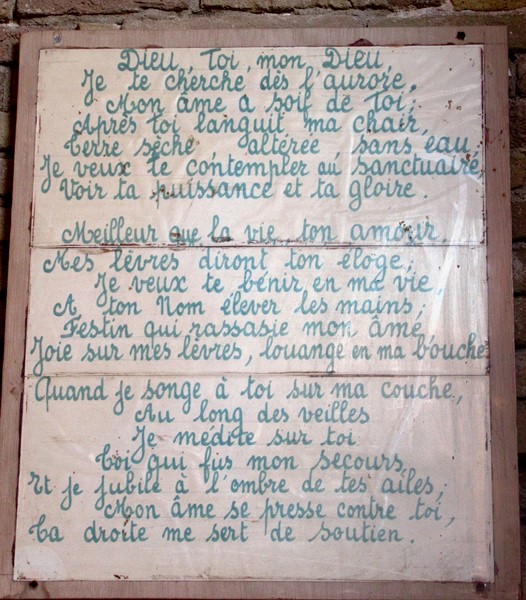 Dieu, Toi, mon Dieu,
Je te cherche dès l'aurore.
Mon âme a soif de toi;
Après toi languit ma chair,
Terre sèche altérée sans eau,
Je veux te contempler au sanctuaire
Voir ta puissance et ta gloire.
Meilleur que la vie, ton amour,
Mes lèvres diront ton éloge;
Je veux te bénir en ma vie,
A ton Nom élever les mains;
Festin qui rassasie mon âme
Joie sur mes lèvres, louange en ma bouche
Quand je songe à toi sur ma couche,
Au long des veilles
Je médite sur toi
Toi qui fus mon secours
Et je jubile à l'ombre de tes ailes;
Mon âme se presse contre toi,
Ta droite me sert de soutien.